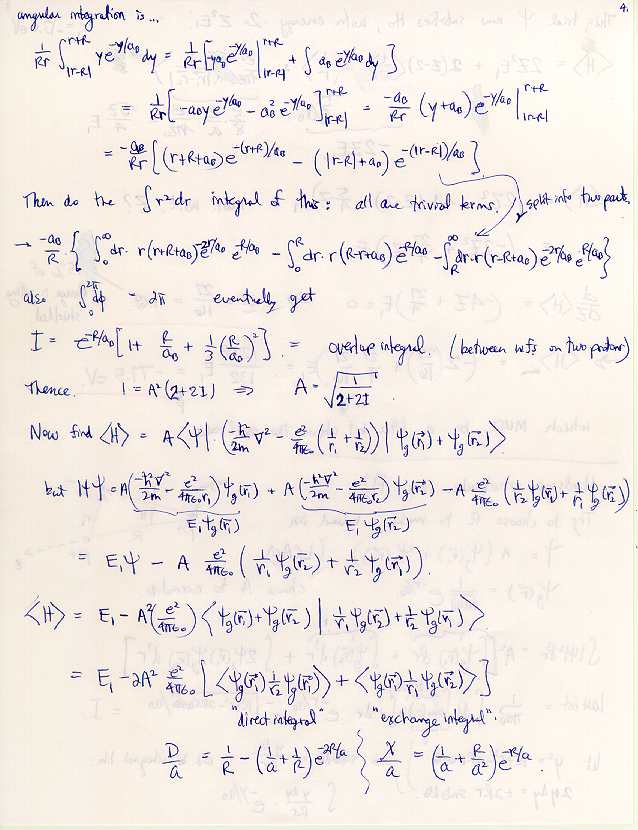 4.
angular integration is...
1/Rr ∫_{|r-R|}^{r+R} y e^{-y/a_0} dy = 1/Rr [ -y a_0 e^{-y/a_0} |_{|r-R|}^{r+R} + ∫ a_0 e^{-y/a_0} dy ]
= 1/Rr [ -a_0 y e^{-y/a_0} - a_0^2 e^{-y/a_0} ]_{|r-R|}^{r+R} = -a_0/Rr (y+a_0) e^{-y/a_0} |_{|r-R|}^{r+R}
= -a_0/Rr [ (r+R+a_0) e^{-(r+R)/a_0} - (|r-R|+a_0) e^{-(|r-R|)/a_0} ]
Then do the ∫ r^2 dr integral of this: all are trivial terms. split into two parts.
→ -a_0/R { ∫_0^∞ dr· r(r+R+a_0) e^{-2r/a_0} e^{-R/a_0} - ∫_0^R dr· r(R-r+a_0) e^{-R/a_0} - ∫_R^∞ dr· r(r-R+a_0) e^{-2r/a_0} e^{R/a_0} }
also ∫_0^{2π} dφ - 2π eventually get
I = e^{-R/a_0} [ 1 + R/a_0 + 1/3 (R/a_0)^2 ]. = overlap integral. (between wfs on two protons)
Thence. 1 = A^2 (2+2I) ⇒ A = √(1/(2+2I))
Now find <H> = A <Ψ| · (-ħ^2/2m ∇^2 - e^2/4πε_0 (1/r_1 + 1/r_2)) | Ψ_g(r⃗_1) + Ψ_g(r⃗_2) >
but HΨ = A (-ħ^2∇^2/2m - e^2/4πε_0r_1) Ψ_g(r⃗_1) + A (-ħ^2∇^2/2m - e^2/4πε_0r_2) Ψ_g(r⃗_2) - A e^2/4πε_0 (1/r_2 Ψ_g(r⃗_1) + 1/r_1 Ψ_g(r⃗_2))
E_1 Ψ_g(r⃗_1) E_1 Ψ_g(r⃗_2)
= E_1Ψ - A e^2/4πε_0 ( 1/r_1 Ψ_g(r⃗_2) + 1/r_2 Ψ_g(r⃗_1) ).
<H> = E_1 - A^2 (e^2/4πε_0) < Ψ_g(r⃗_1) + Ψ_g(r⃗_2) | 1/r_1 Ψ_g(r⃗_2) + 1/r_2 Ψ_g(r⃗_1) >
= E_1 - 2A^2 e^2/4πε_0 [ <Ψ_g(r⃗_1) 1/r_2 Ψ_g(r⃗_1)> + <Ψ_g(r⃗_1) 1/r_1 Ψ_g(r⃗_2)> ]
"direct integral" "exchange integral".
D/a = 1/R - (1/a + 1/R) e^{-2R/a} } X/a = (1/a + R/a^2) e^{-R/a}.